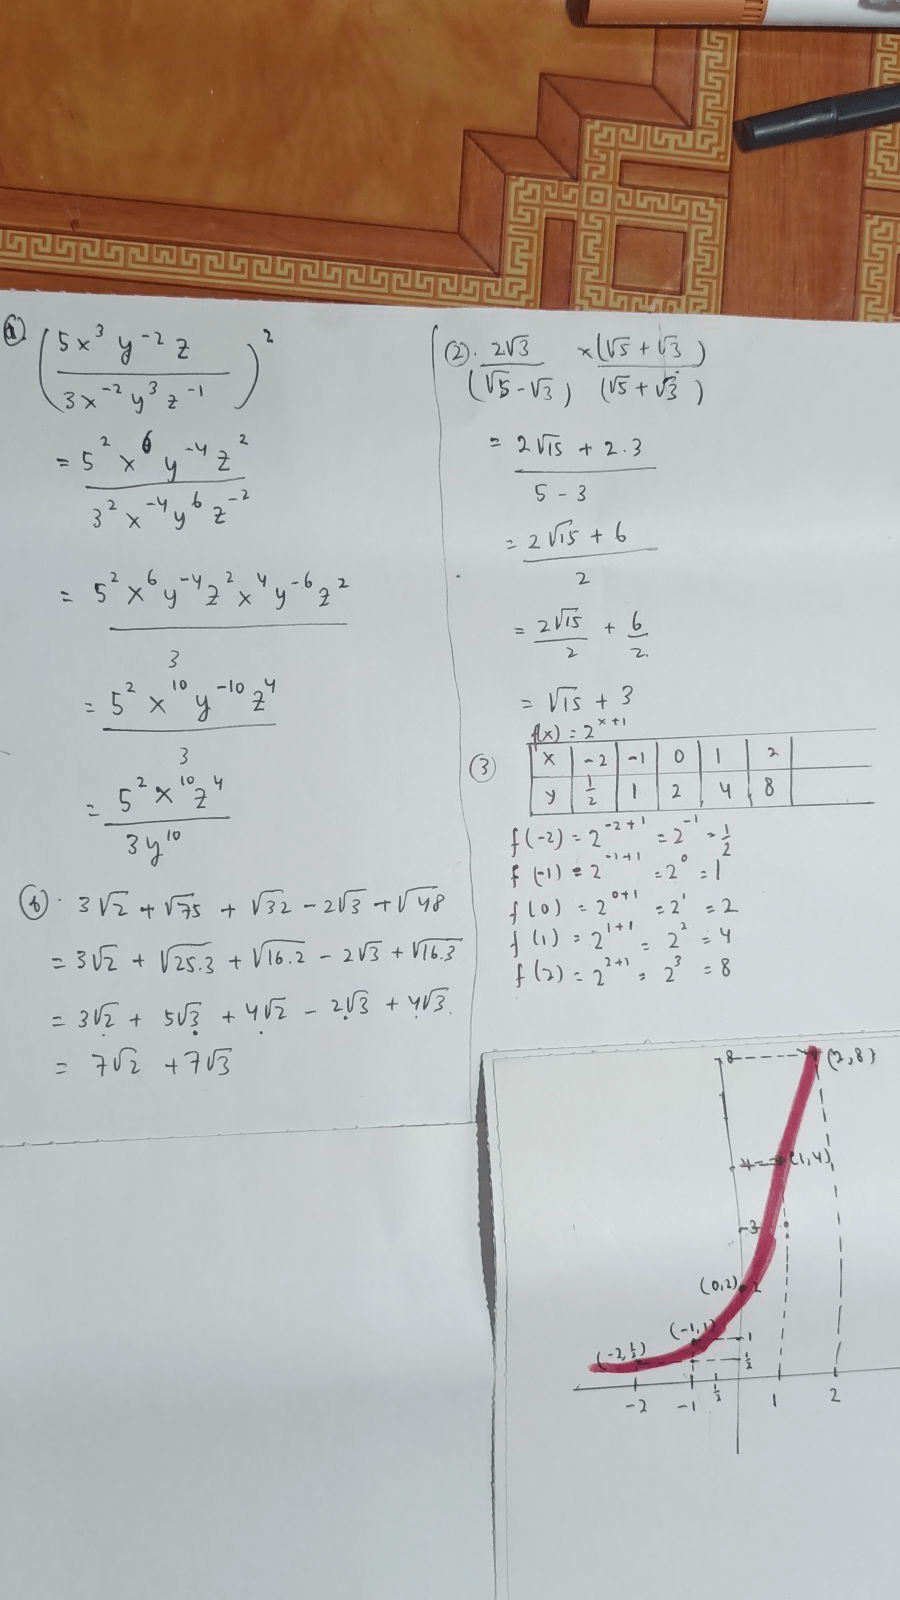 a. (5x³y⁻²z / 3x⁻²y³z⁻¹)²
= 5²x⁶y⁻⁴z² / 3²x⁻⁴y⁶z⁻²
= 5²x⁶y⁻⁴z²x⁴y⁻⁶z² / 3
= 5²x¹⁰y⁻¹⁰z⁴ / 3
= 5²x¹⁰z⁴ / 3y¹⁰
b. 3√2 + √75 + √32 − 2√3 + √48
= 3√2 + √25.3 + √16.2 − 2√3 + √16.3
= 3√2 + 5√3 + 4√2 − 2√3 + 4√3
= 7√2 + 7√3
2. 2√3 / (√5−√3) × (√5+√3) / (√5+√3)
= 2√15 + 2.3 / 5−3
= 2√15 + 6 / 2
= 2√15 / 2 + 6 / 2
= √15 + 3
3 f(x) = 2ˣ⁺¹
x -2 -1 0 1 2
y 1/2 1 2 4 8
f(-2) = 2⁻²⁺¹ = 2⁻¹ = 1/2
f(-1) = 2⁻¹⁺¹ = 2⁰ = 1
f(0) = 2⁰⁺¹ = 2¹ = 2
f(1) = 2¹⁺¹ = 2² = 4
f(2) = 2²⁺¹ = 2³ = 8
8 (2,8)
4 (1,4)
3
(0,2) 2
(-1,1) 1
(-2,1/2) 1/2
-2 -1 1/2 1 2